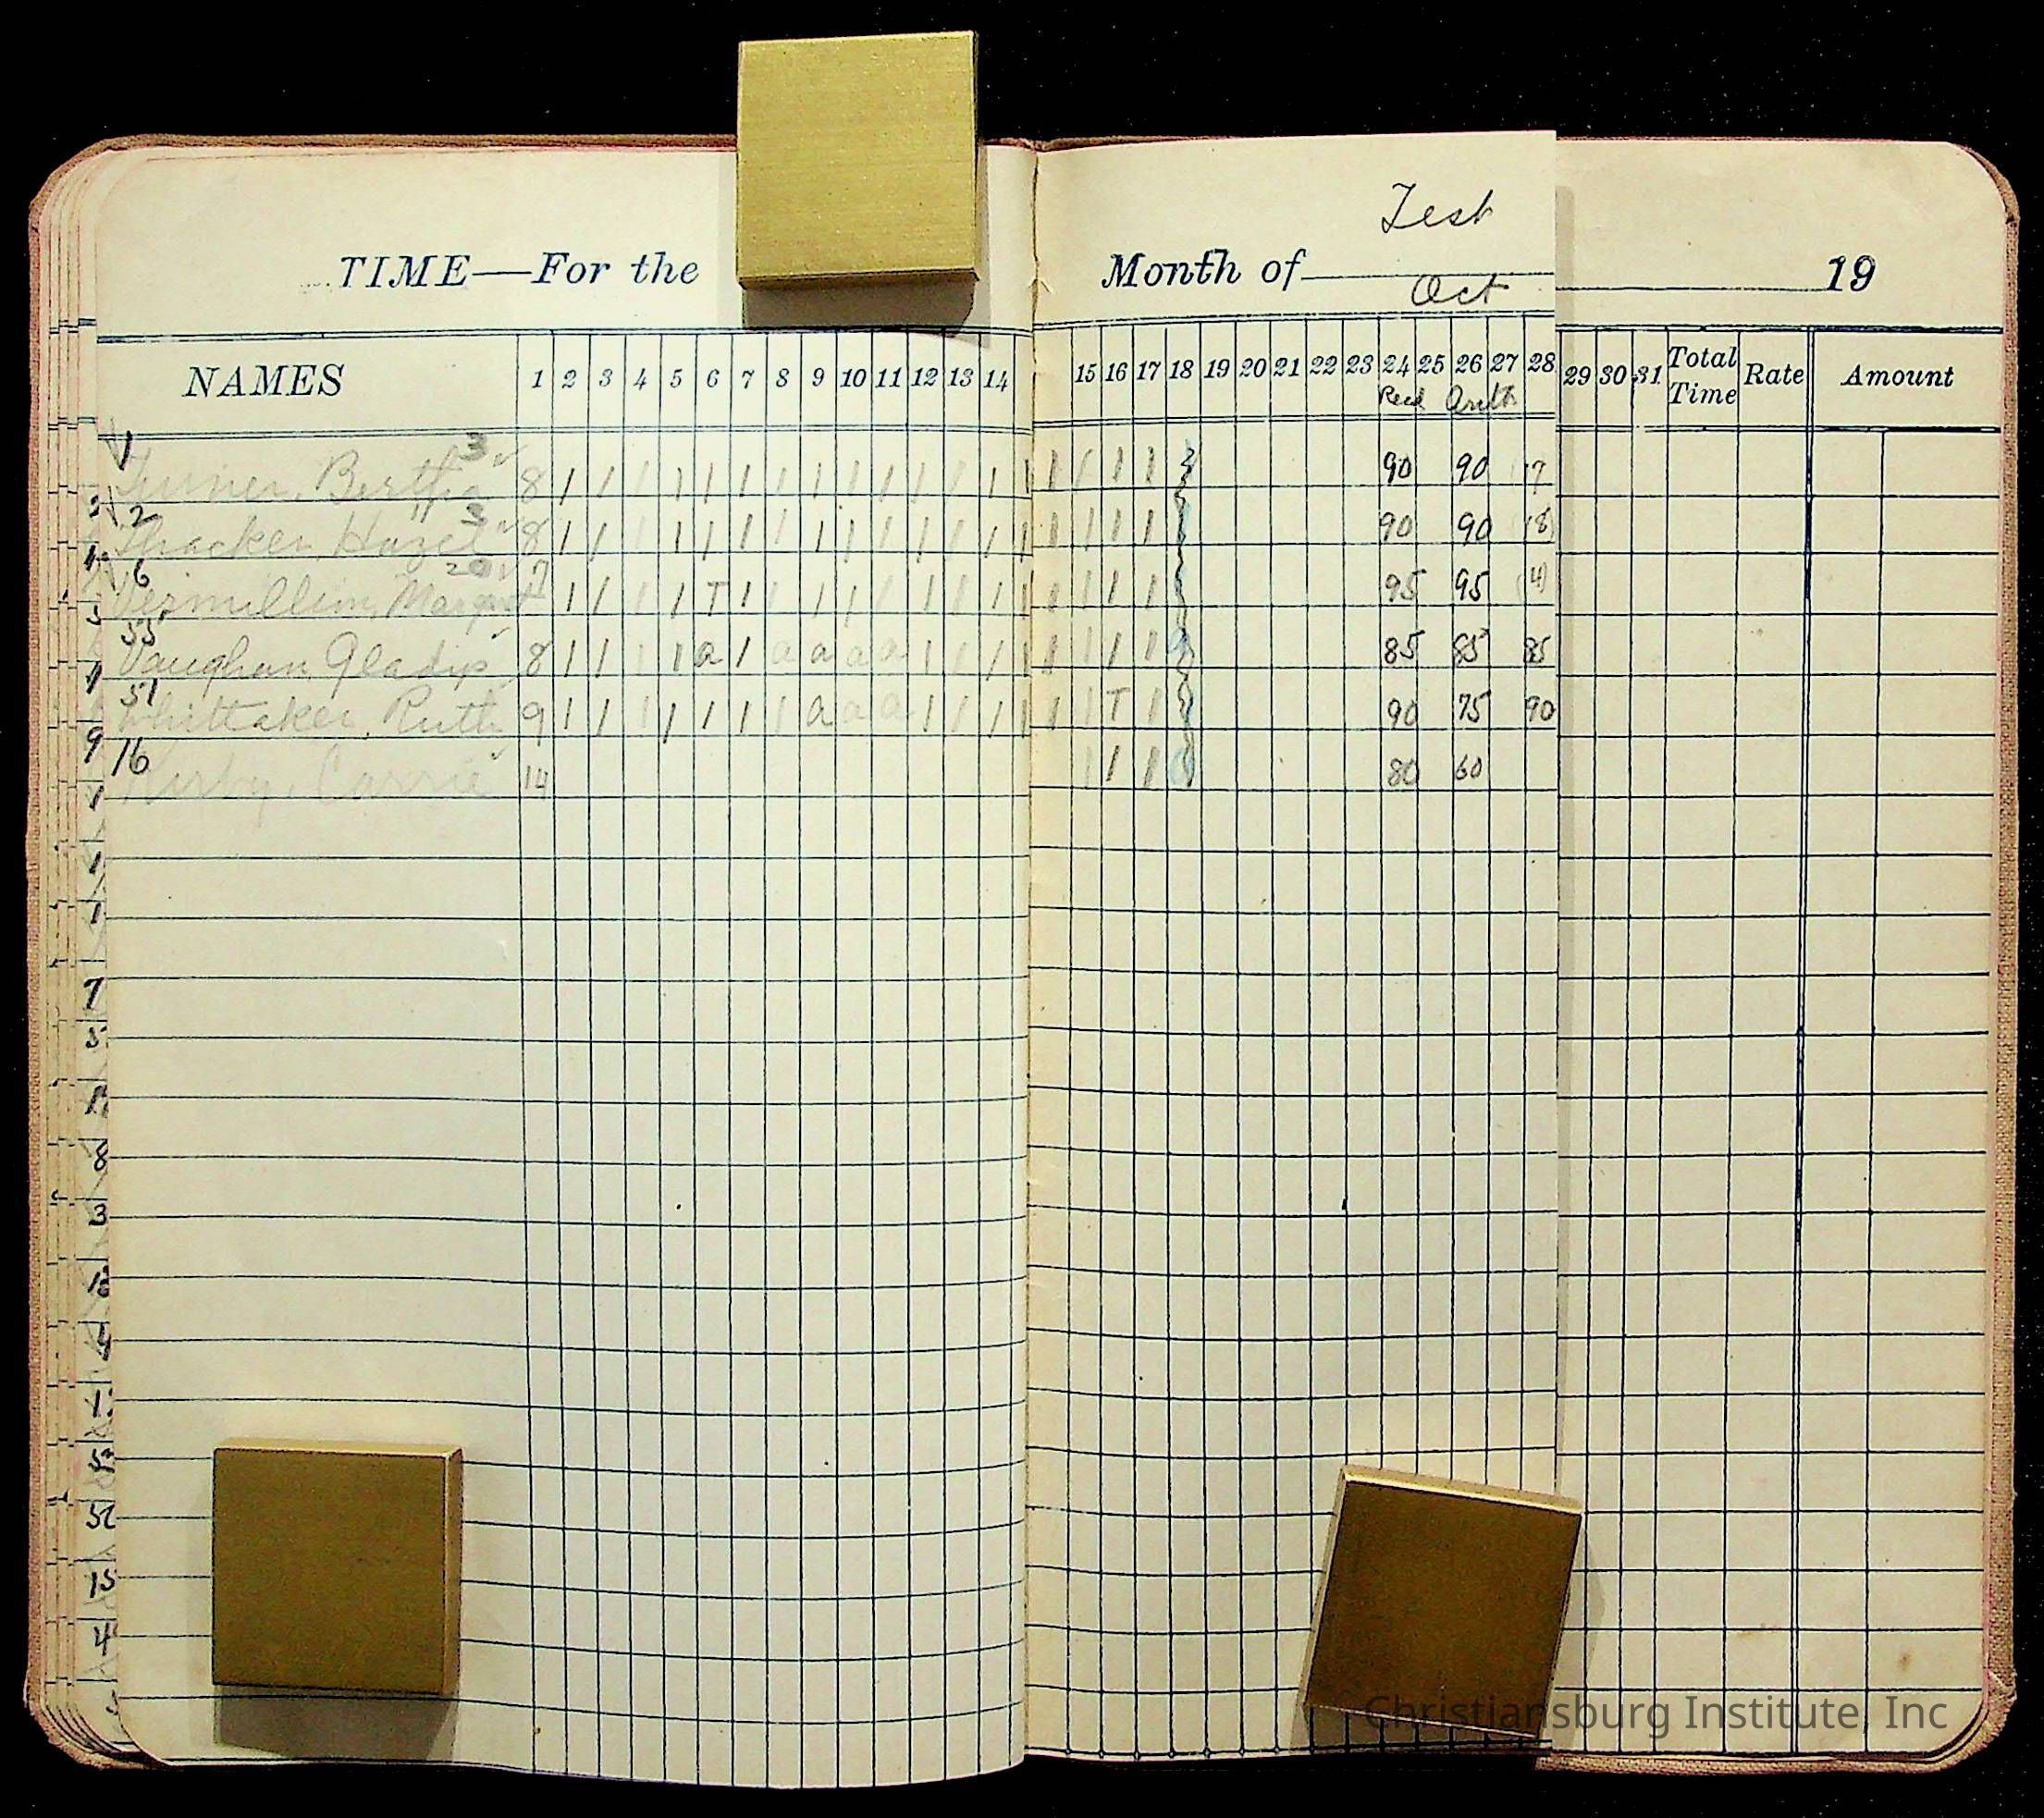 Test
TIME—For the Month of Oct 19
NAMES 1 2 3 4 5 6 7 8 9 10 11 12 13 14 15 16 17 18 19 20 21 22 23 24 25 26 27 28 29 30 31 Total Time Rate Amount
Read Arith
1 Turner, Bertha 3 8 / / / / / / / / / / / / / / / / / 90 90
2 Thacker, Hazel 3 8 / / / / / / / / / / / / / / / 90 90 (8)
6 Vermillion, Margaret 20 7 / / / / T / / / / / / / / / / / 95 95 (4)
55 Vaughan, Gladys 8 / / / / a / a a a a / / / / / / / 85 85 85
51 Whittaker, Ruth 9 / / / / / / / a a a / / / / / T / 90 75 90
16 Kirby, Carrie 14 / / / 80 60
Christiansburg Institute, Inc